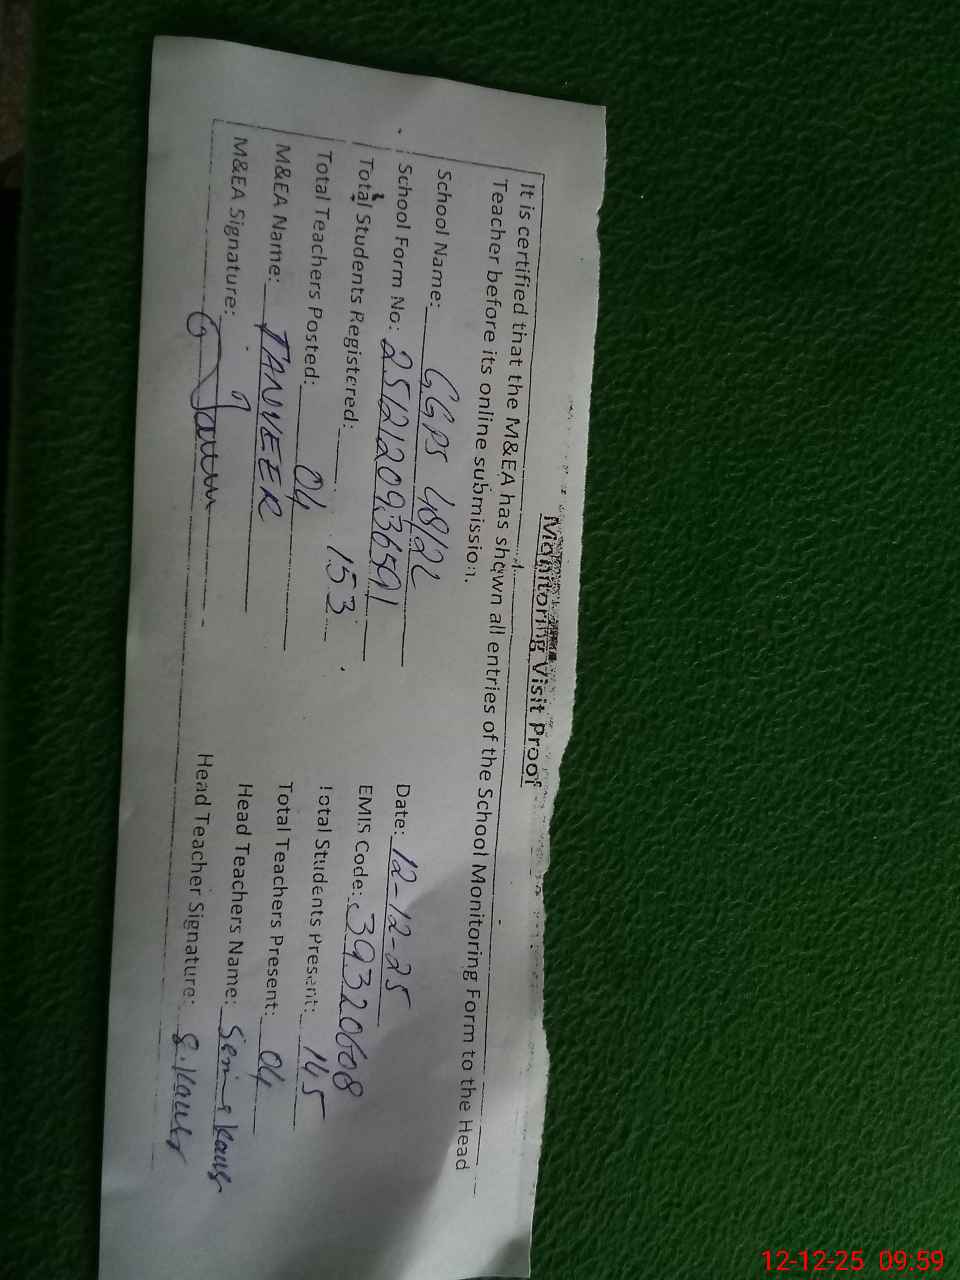 Monitoring Visit Proof
It is certified that the M&EA has shown all entries of the School Monitoring Form to the Head
Teacher before its online submission.
School Name: GGPS 48/2L
Date: 12-12-25
School Form No: 2512120936591
EMIS Code: 39320608
Total Students Registered: 153
Total Students Present: 145
Total Teachers Posted: 04
Total Teachers Present: 04
M&EA Name: TANVEER
Head Teachers Name: Kausr
M&EA Signature:
Head Teacher Signature: S. Kausr
12-12-25 09.59